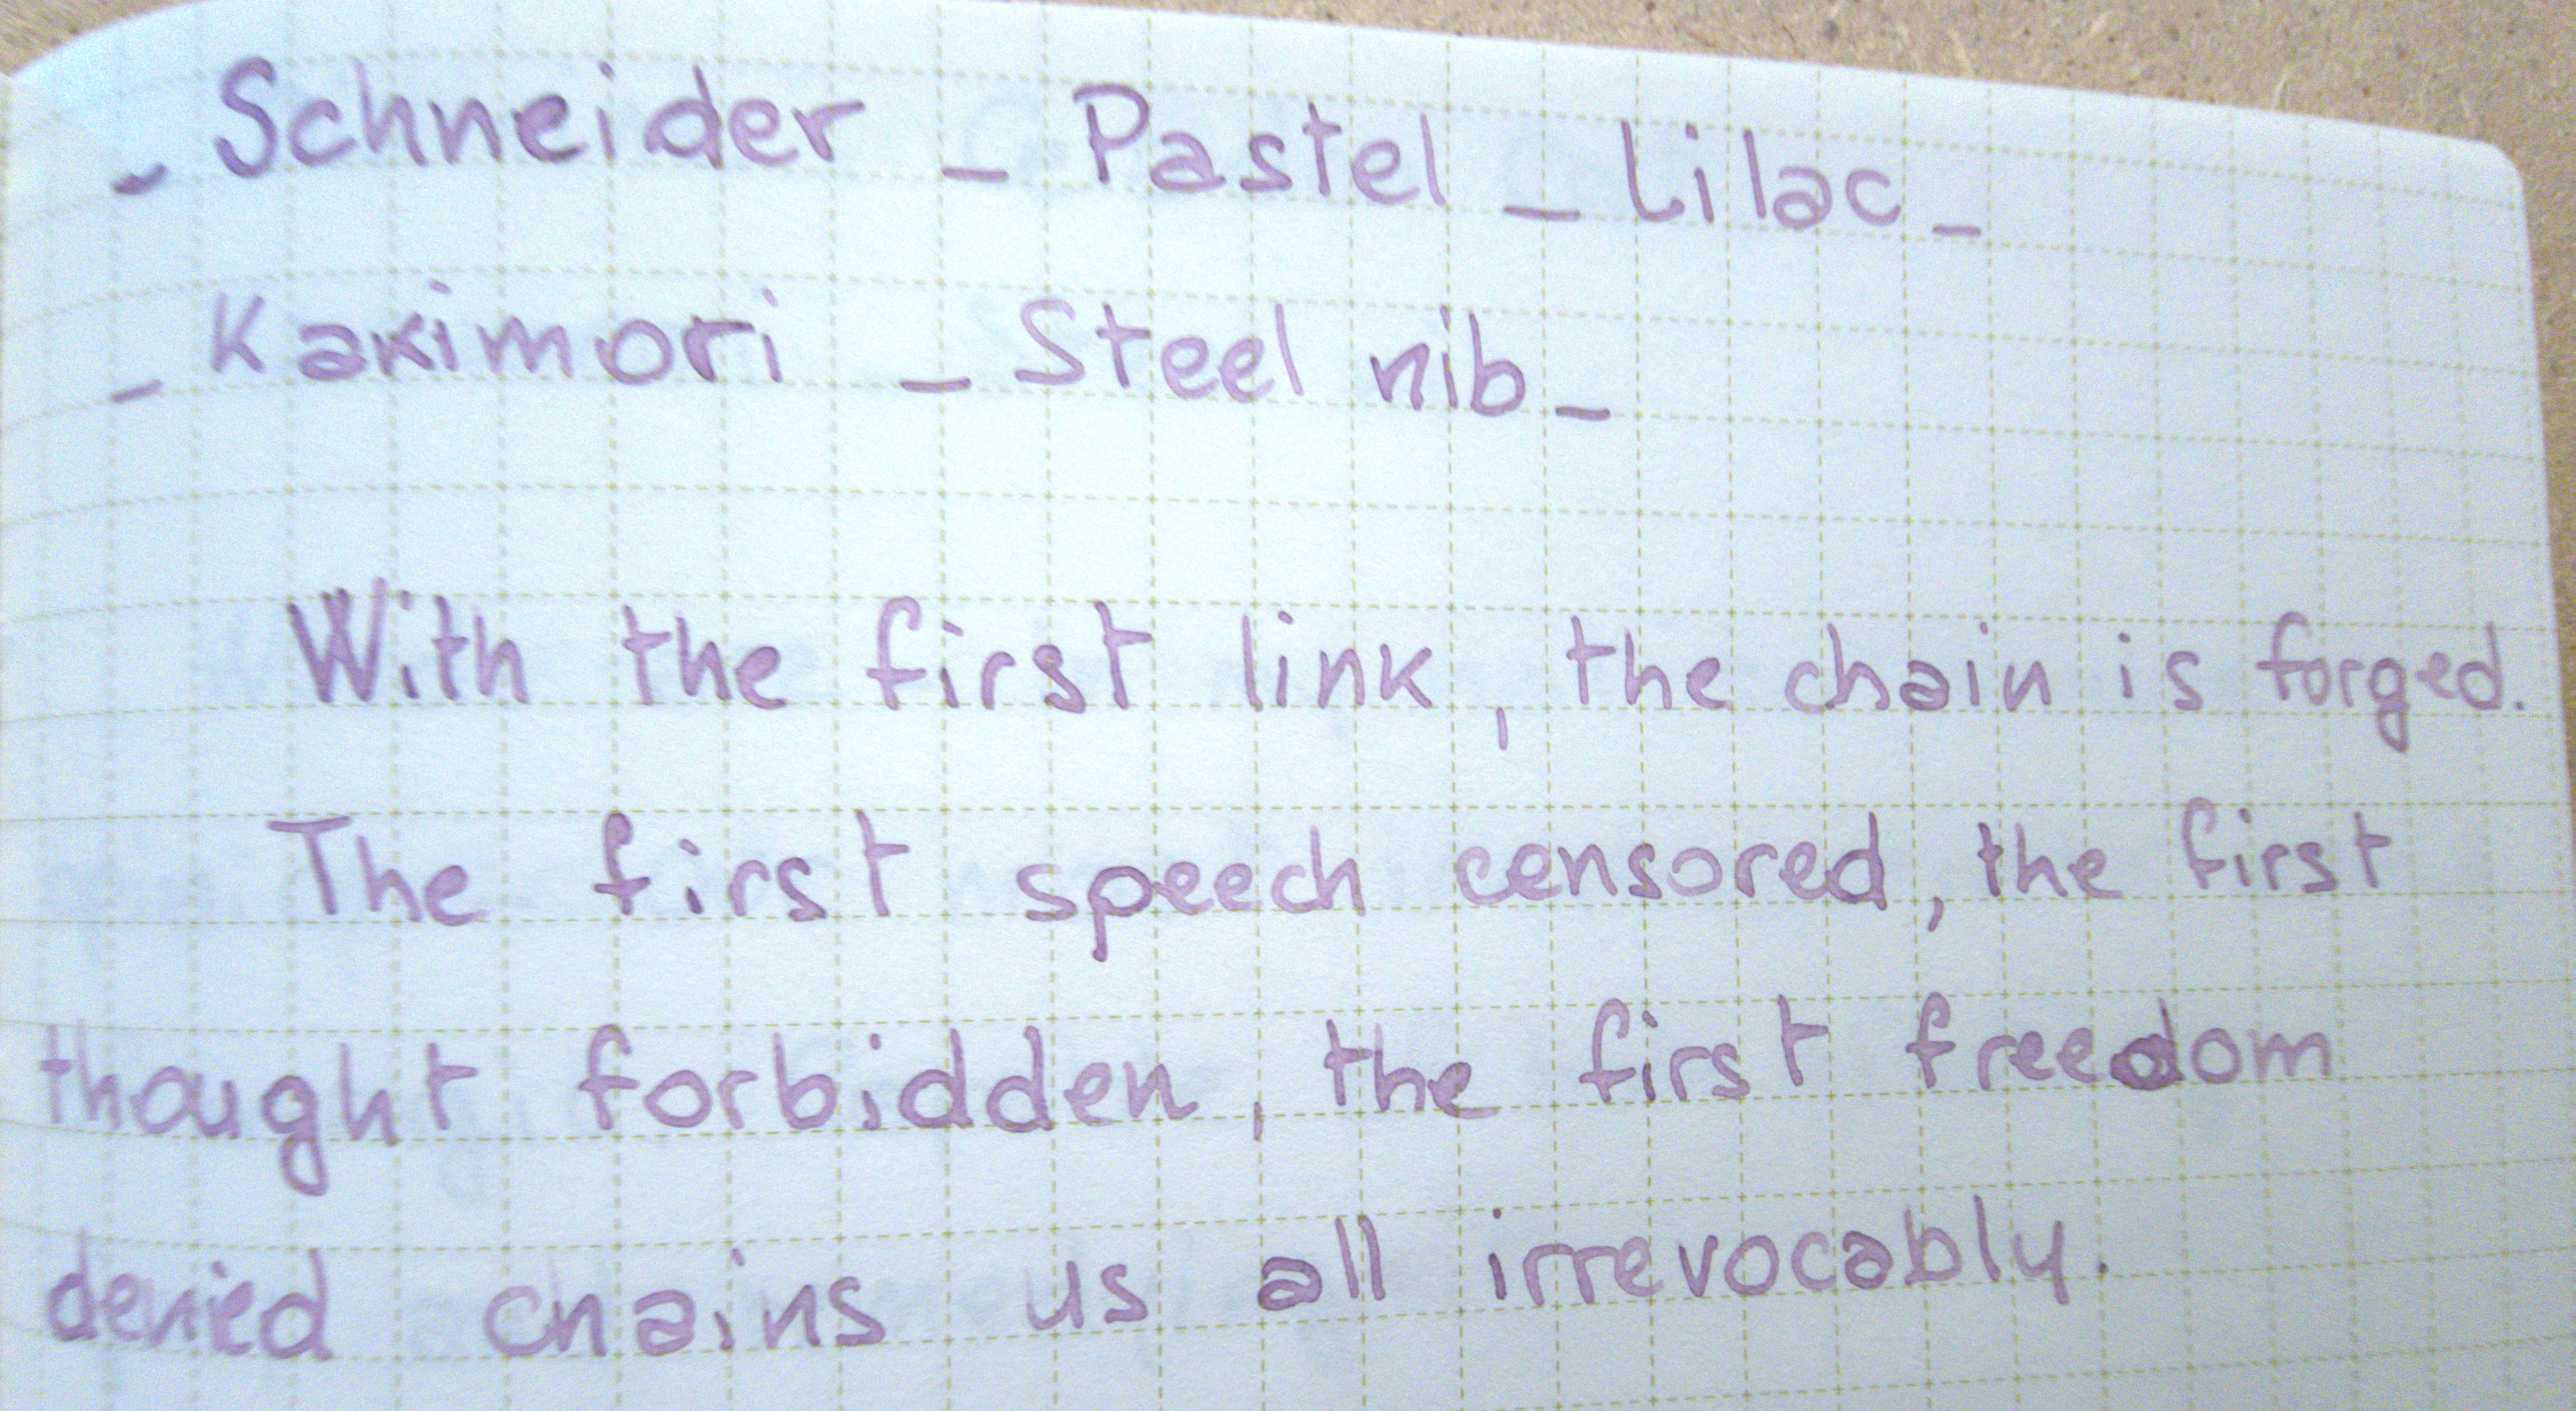 - Schneider - Pastel - Lilac -
- Kakimori - Steel nib -
With the first link, the chain is forged.
The first speech censored, the first
thought forbidden, the first freedom
denied chains us all irrevocably.